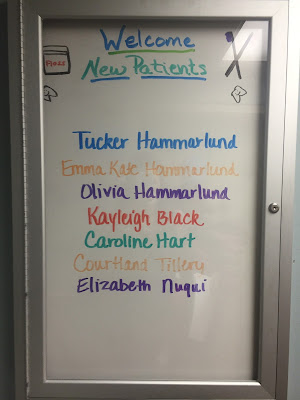 Welcome
New Patients
Floss
Tucker Hammarlund
Emma Kate Hammarlund
Olivia Hammarlund
Kayleigh Black
Caroline Hart
Courtland Tillery
Elizabeth Nuqui